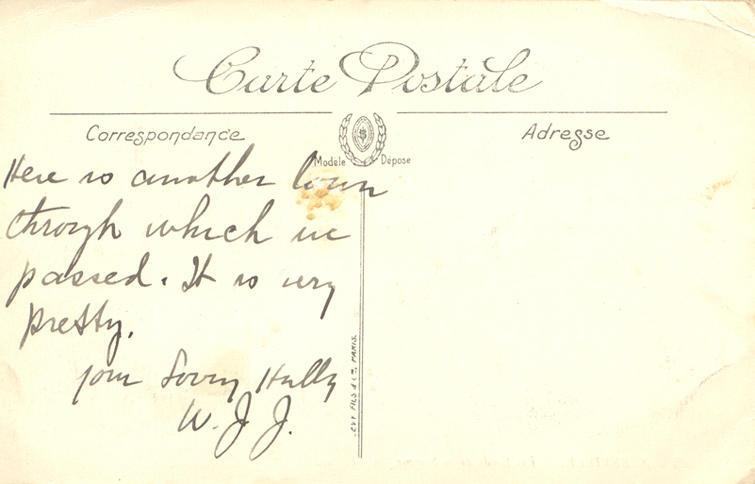 Carte Postale
Correspondance
Adresse
Modèle Déposé
Here is another town
through which we
passed. It is very
pretty.
your
W. J. J.
LEVY FILS & Cie, PARIS.